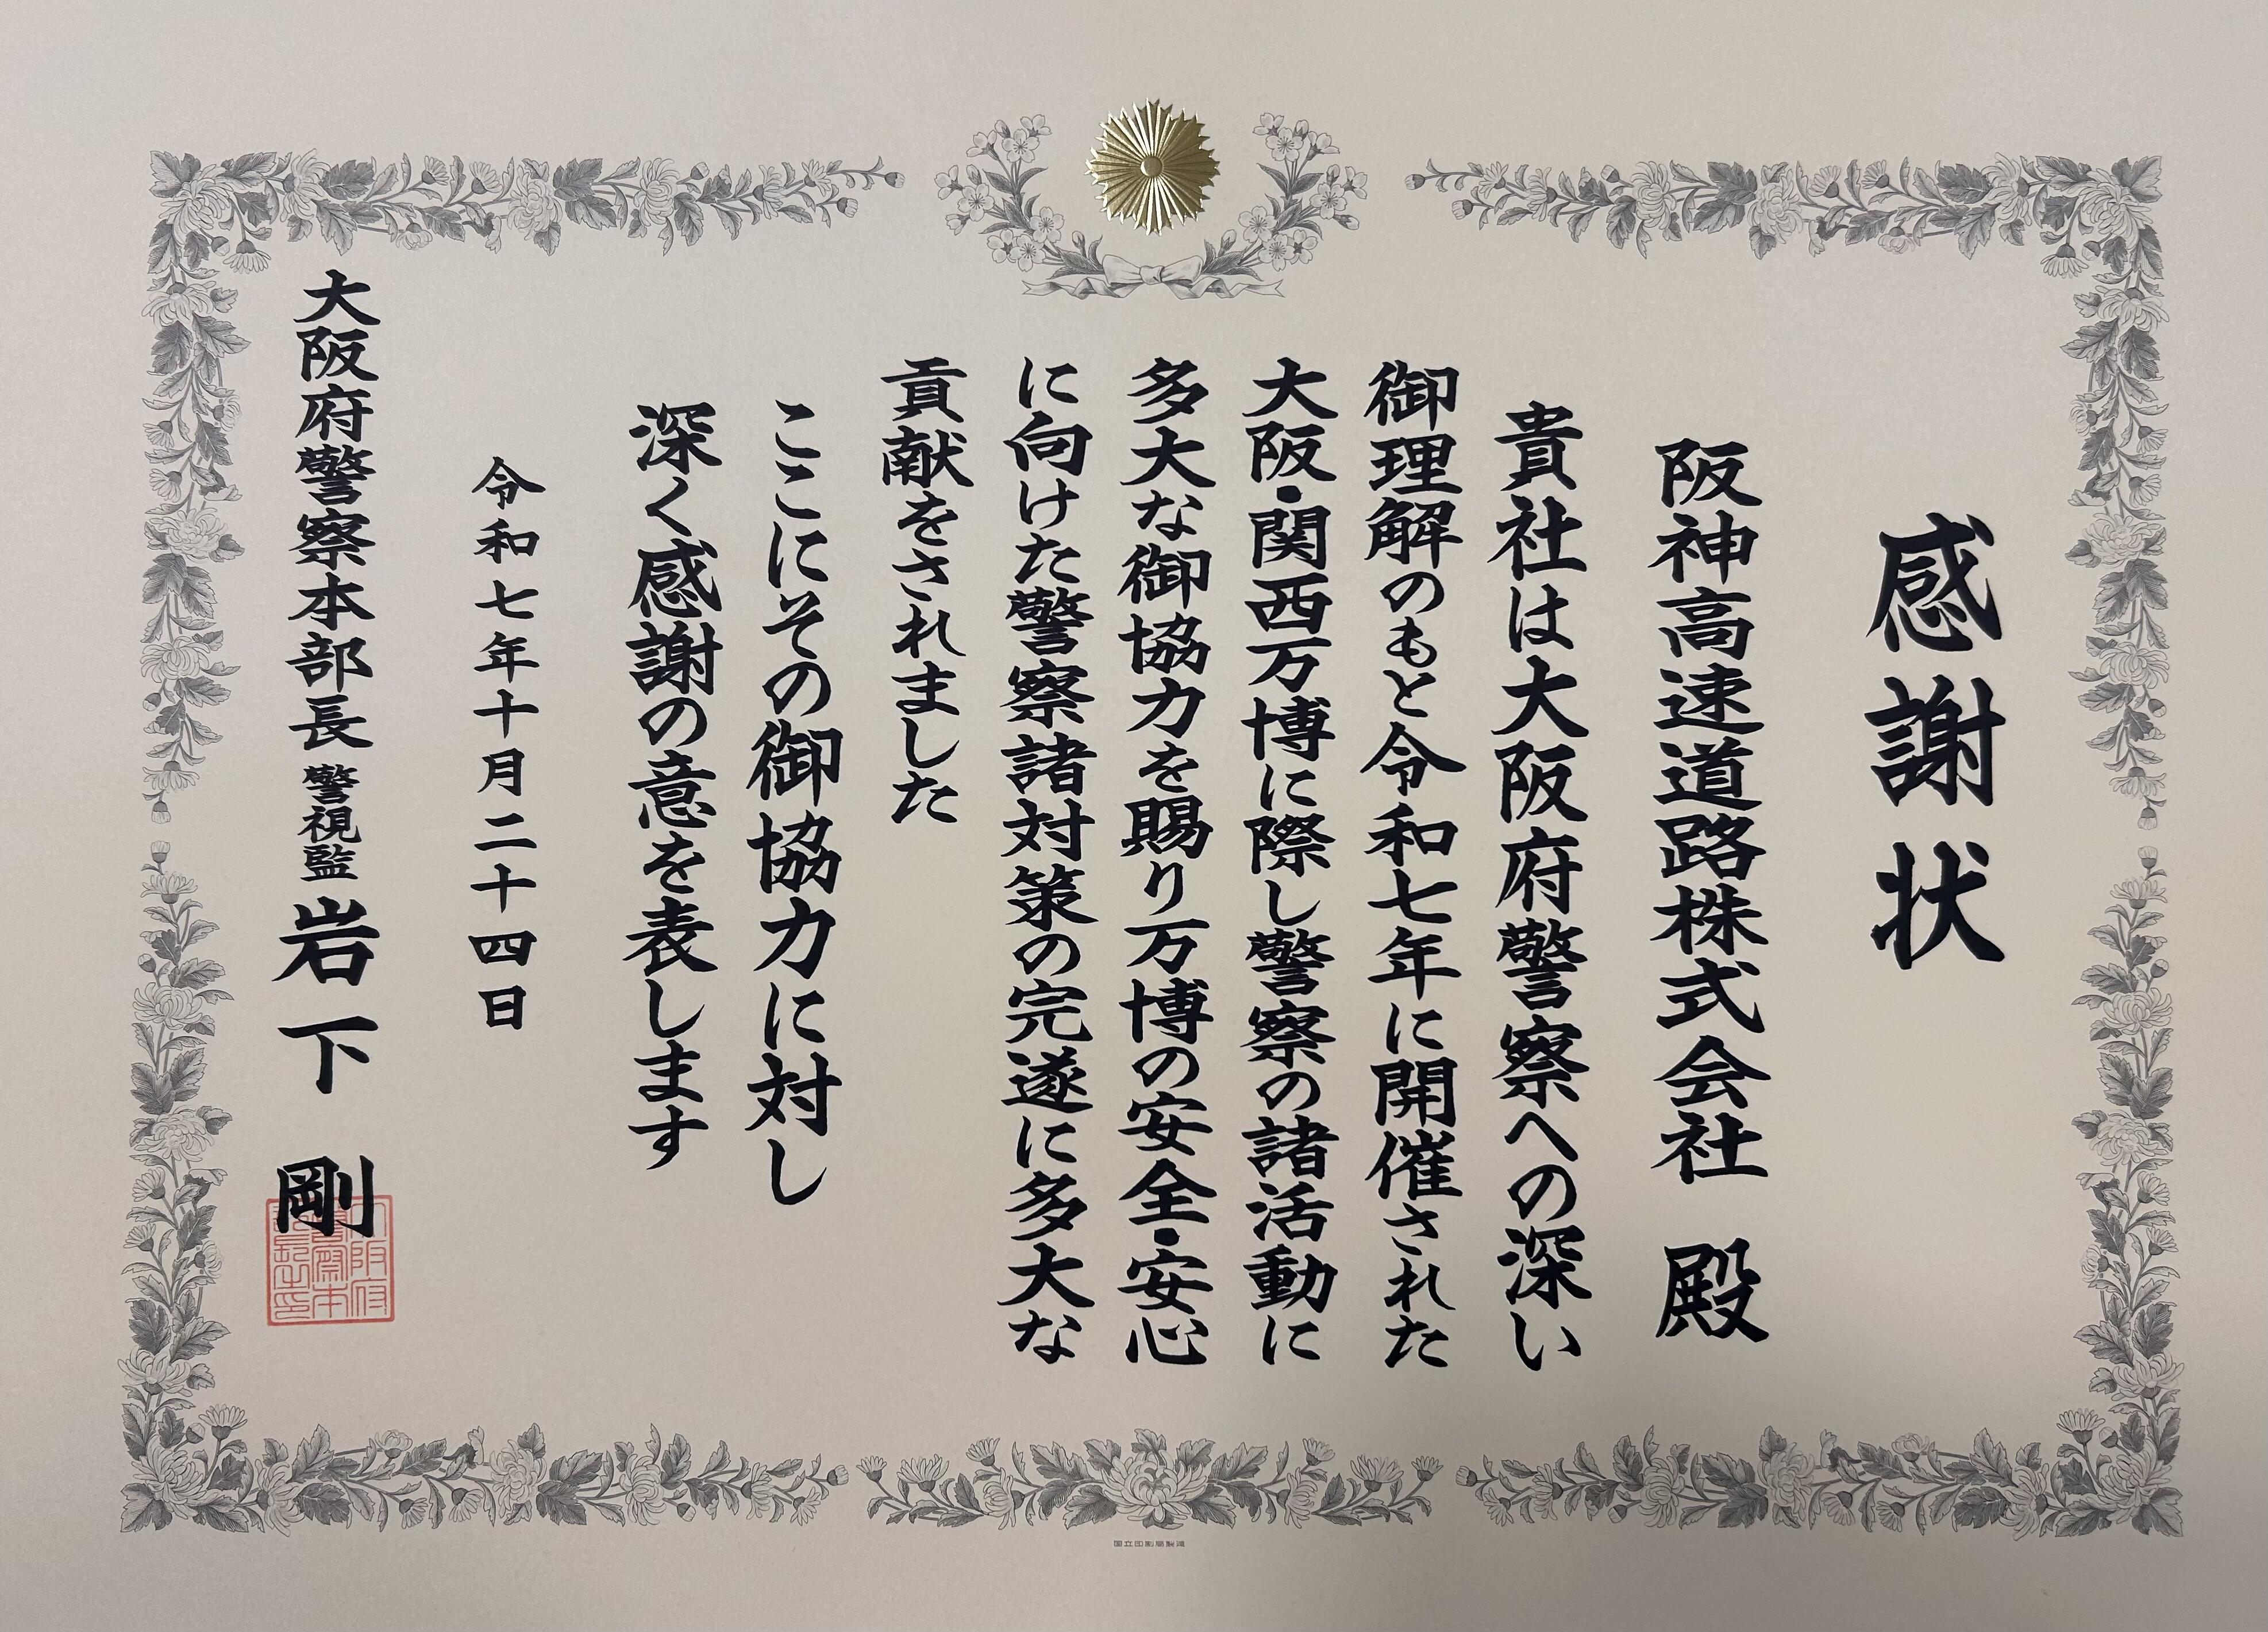 感謝状
阪神高速道路株式会社 殿
貴社は大阪府警察への深い
御理解のもと令和七年に開催された
大阪・関西万博に際し警察の諸活動に
多大な御協力を賜り万博の安全・安心
に向けた警察諸対策の完遂に多大な
貢献をされました
ここにその御協力に対し
深く感謝の意を表します
令和七年十月二十四日
大阪府警察本部長 警視監 岩下 剛
大阪府
警察本
部長之印
国立印刷局製造